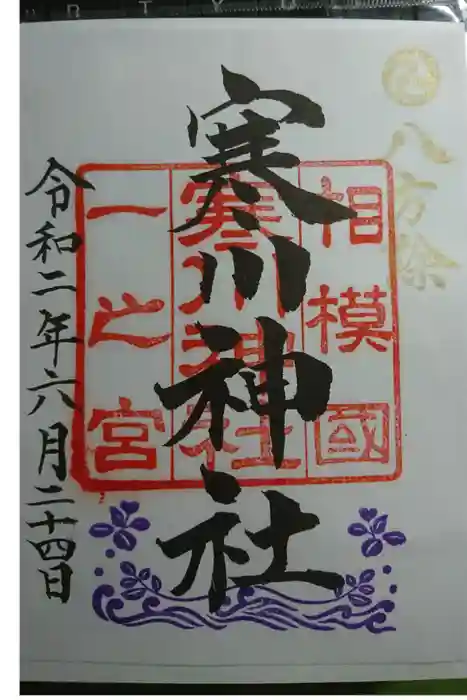 八方除
相模國
寒川神社
一之宮
寒川神社
令和二年六月二十四日